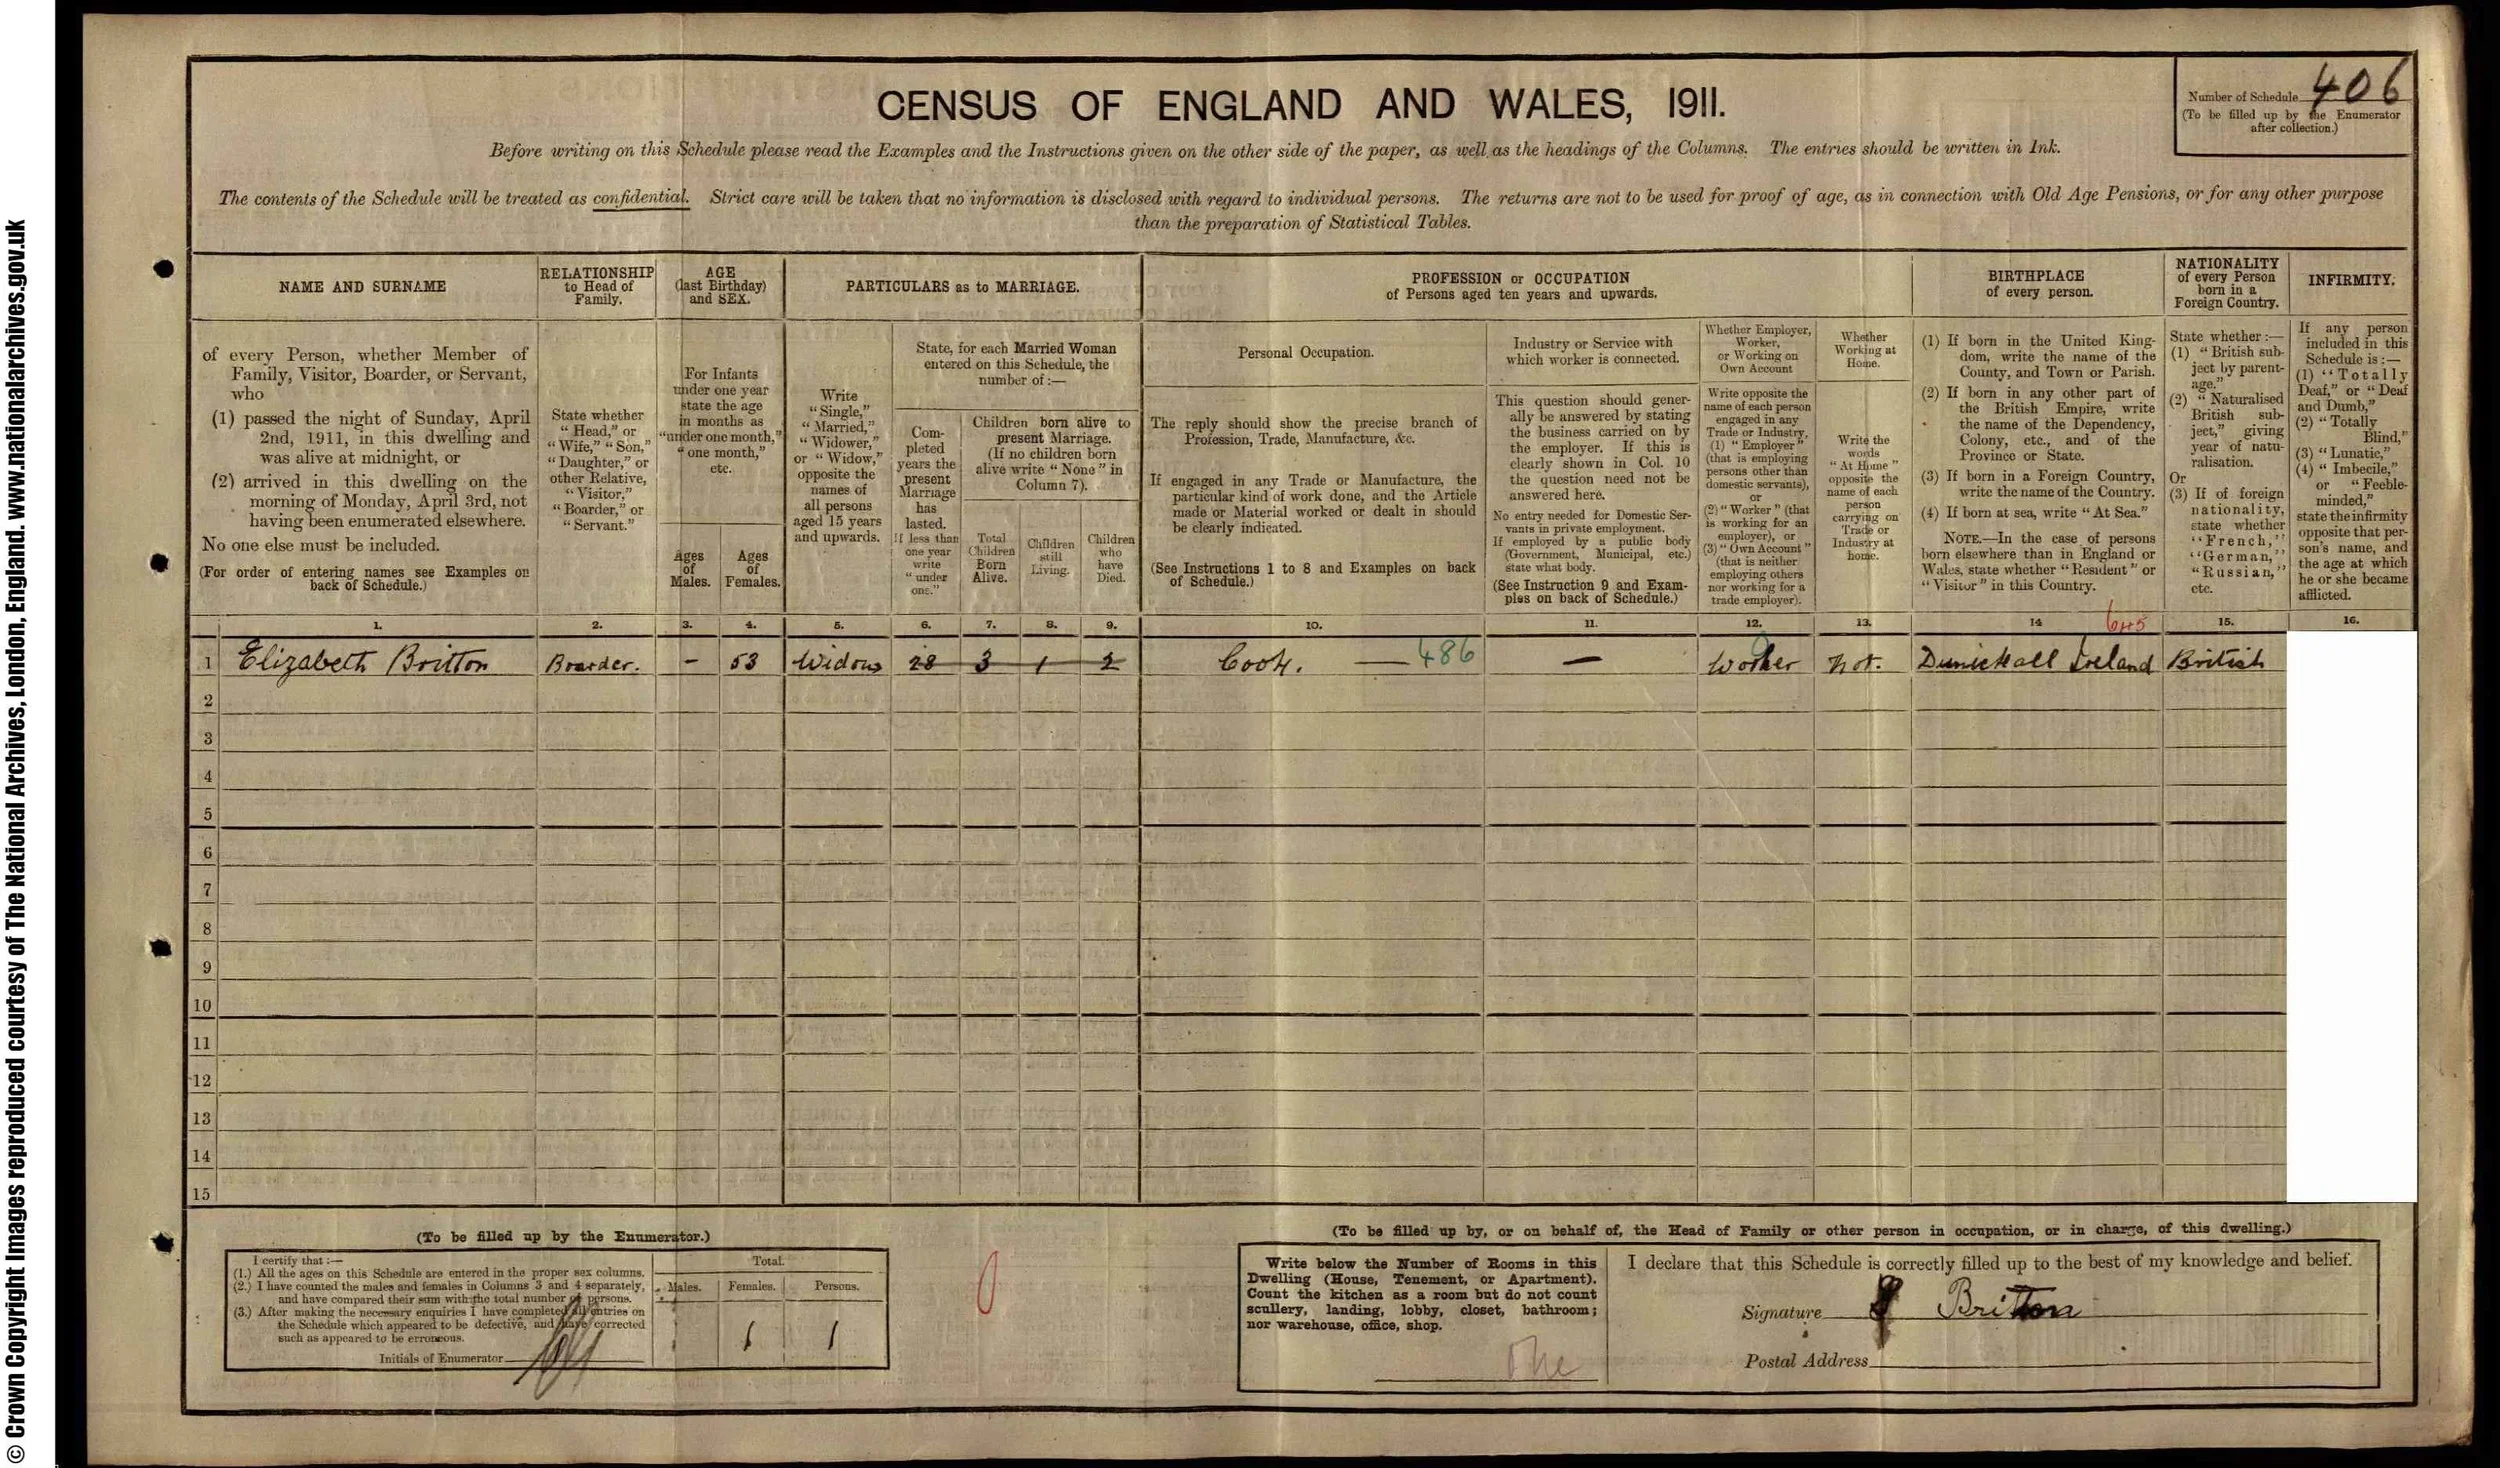 © Crown Copyright Images reproduced courtesy of The National Archives, London, England. www.nationalarchives.gov.uk
CENSUS OF ENGLAND AND WALES, 1911.
Number of Schedule 406
(To be filled up by the Enumerator
after collection.)
Before writing on this Schedule please read the Examples and the Instructions given on the other side of the paper, as well as the headings of the Columns. The entries should be written in Ink.
The contents of the Schedule will be treated as confidential. Strict care will be taken that no information is disclosed with regard to individual persons. The returns are not to be used for proof of age, as in connection with Old Age Pensions, or for any other purpose
than the preparation of Statistical Tables.
NAME AND SURNAME
of every Person, whether Member of
Family, Visitor, Boarder, or Servant,
who
(1) passed the night of Sunday, April
2nd, 1911, in this dwelling and
was alive at midnight, or
(2) arrived in this dwelling on the
morning of Monday, April 3rd, not
having been enumerated elsewhere.
No one else must be included.
(For order of entering names see Examples on
back of Schedule.)
RELATIONSHIP
to Head of
Family.
State whether
"Head," or
"Wife," "Son,"
"Daughter," or
other Relative,
"Visitor,"
"Boarder," or
"Servant."
AGE
(last Birthday)
and SEX.
For Infants
under one year
state the age
in months as
"under one month,"
"one month,"
etc.
Ages
of
Males.
Ages
of
Females.
PARTICULARS as to MARRIAGE.
Write
"Single,"
"Married,"
"Widower,"
or "Widow,"
opposite the
names of
all persons
aged 15 years
and upwards.
State, for each Married Woman
entered on this Schedule, the
number of:—
Com-
pleted
years the
present
Marriage
has
lasted.
If less than
one year
write
"under
one."
Children born alive to
present Marriage.
(If no children born
alive write "None" in
Column 7).
Total
Children
Born
Alive.
Children
still
Living.
Children
who
have
Died.
PROFESSION or OCCUPATION
of Persons aged ten years and upwards.
Personal Occupation.
The reply should show the precise branch of
Profession, Trade, Manufacture, &c.
If engaged in any Trade or Manufacture, the
particular kind of work done, and the Article
made or Material worked or dealt in should
be clearly indicated.
(See Instructions 1 to 8 and Examples on back
of Schedule.)
Industry or Service with
which worker is connected.
This question should gener-
ally be answered by stating
the business carried on by
the employer. If this is
clearly shown in Col. 10
the question need not be
answered here.
No entry needed for Domestic Ser-
vants in private employment.
If employed by a public body
(Government, Municipal, etc.)
state what body.
(See Instruction 9 and Exam-
ples on back of Schedule.)
Whether Employer,
Worker,
or Working on
Own Account
Write opposite the
name of each person
engaged in any
Trade or Industry,
(1) "Employer"
(that is employing
persons other than
domestic servants),
or
(2) "Worker" (that
is working for an
employer), or
(3) "Own Account"
(that is neither
employing others
nor working for a
trade employer).
Whether
Working at
Home.
Write the
words
"At Home"
opposite the
name of each
person
carrying on
Trade or
Industry at
home.
BIRTHPLACE
of every person.
(1) If born in the United King-
dom, write the name of the
County, and Town or Parish.
(2) If born in any other part of
the British Empire, write
the name of the Dependency,
Colony, etc., and of the
Province or State.
(3) If born in a Foreign Country,
write the name of the Country.
(4) If born at sea, write "At Sea."
NOTE.—In the case of persons
born elsewhere than in England or
Wales, state whether "Resident" or
"Visitor" in this Country.
NATIONALITY
of every Person
born in a
Foreign Country.
State whether:—
(1) "British sub-
ject by parent-
age."
(2) "Naturalised
British sub-
ject," giving
year of natu-
ralisation.
Or
(3) If of foreign
nationality,
state whether
"French,"
"German,"
"Russian,"
etc.
INFIRMITY.
If any person
included in this
Schedule is:—
(1) "Totally
Deaf," or "Deaf
and Dumb,"
(2) "Totally
Blind,"
(3) "Lunatic,"
(4) "Imbecile,"
or "Feeble-
minded,"
state the infirmity
opposite that per-
son's name, and
the age at which
he or she became
afflicted.
1. 2. 3. 4. 5. 6. 7. 8. 9. 10. 11. 12. 13. 14 15. 16.
645
1 Elizabeth Britton Boarder. – 53 Widow 28 3 1 2 Cook. — 486 — Worker Not. Ireland British
2
3
4
5
6
7
8
9
10
11
12
13
14
15
(To be filled up by the Enumerator.)
I certify that:—
(1.) All the ages on this Schedule are entered in the proper sex columns.
(2.) I have counted the males and females in Columns 3 and 4 separately,
and have compared their sum with the total number of persons.
(3.) After making the necessary enquiries I have completed all entries on
the Schedule which appeared to be defective, and have corrected
such as appeared to be erroneous.
Initials of Enumerator
Total.
Males. Females. Persons.
1 1
0
(To be filled up by, or on behalf of, the Head of Family or other person in occupation, or in charge, of this dwelling.)
Write below the Number of Rooms in this
Dwelling (House, Tenement, or Apartment).
Count the kitchen as a room but do not count
scullery, landing, lobby, closet, bathroom;
nor warehouse, office, shop.
One
I declare that this Schedule is correctly filled up to the best of my knowledge and belief.
Signature Britton
Postal Address